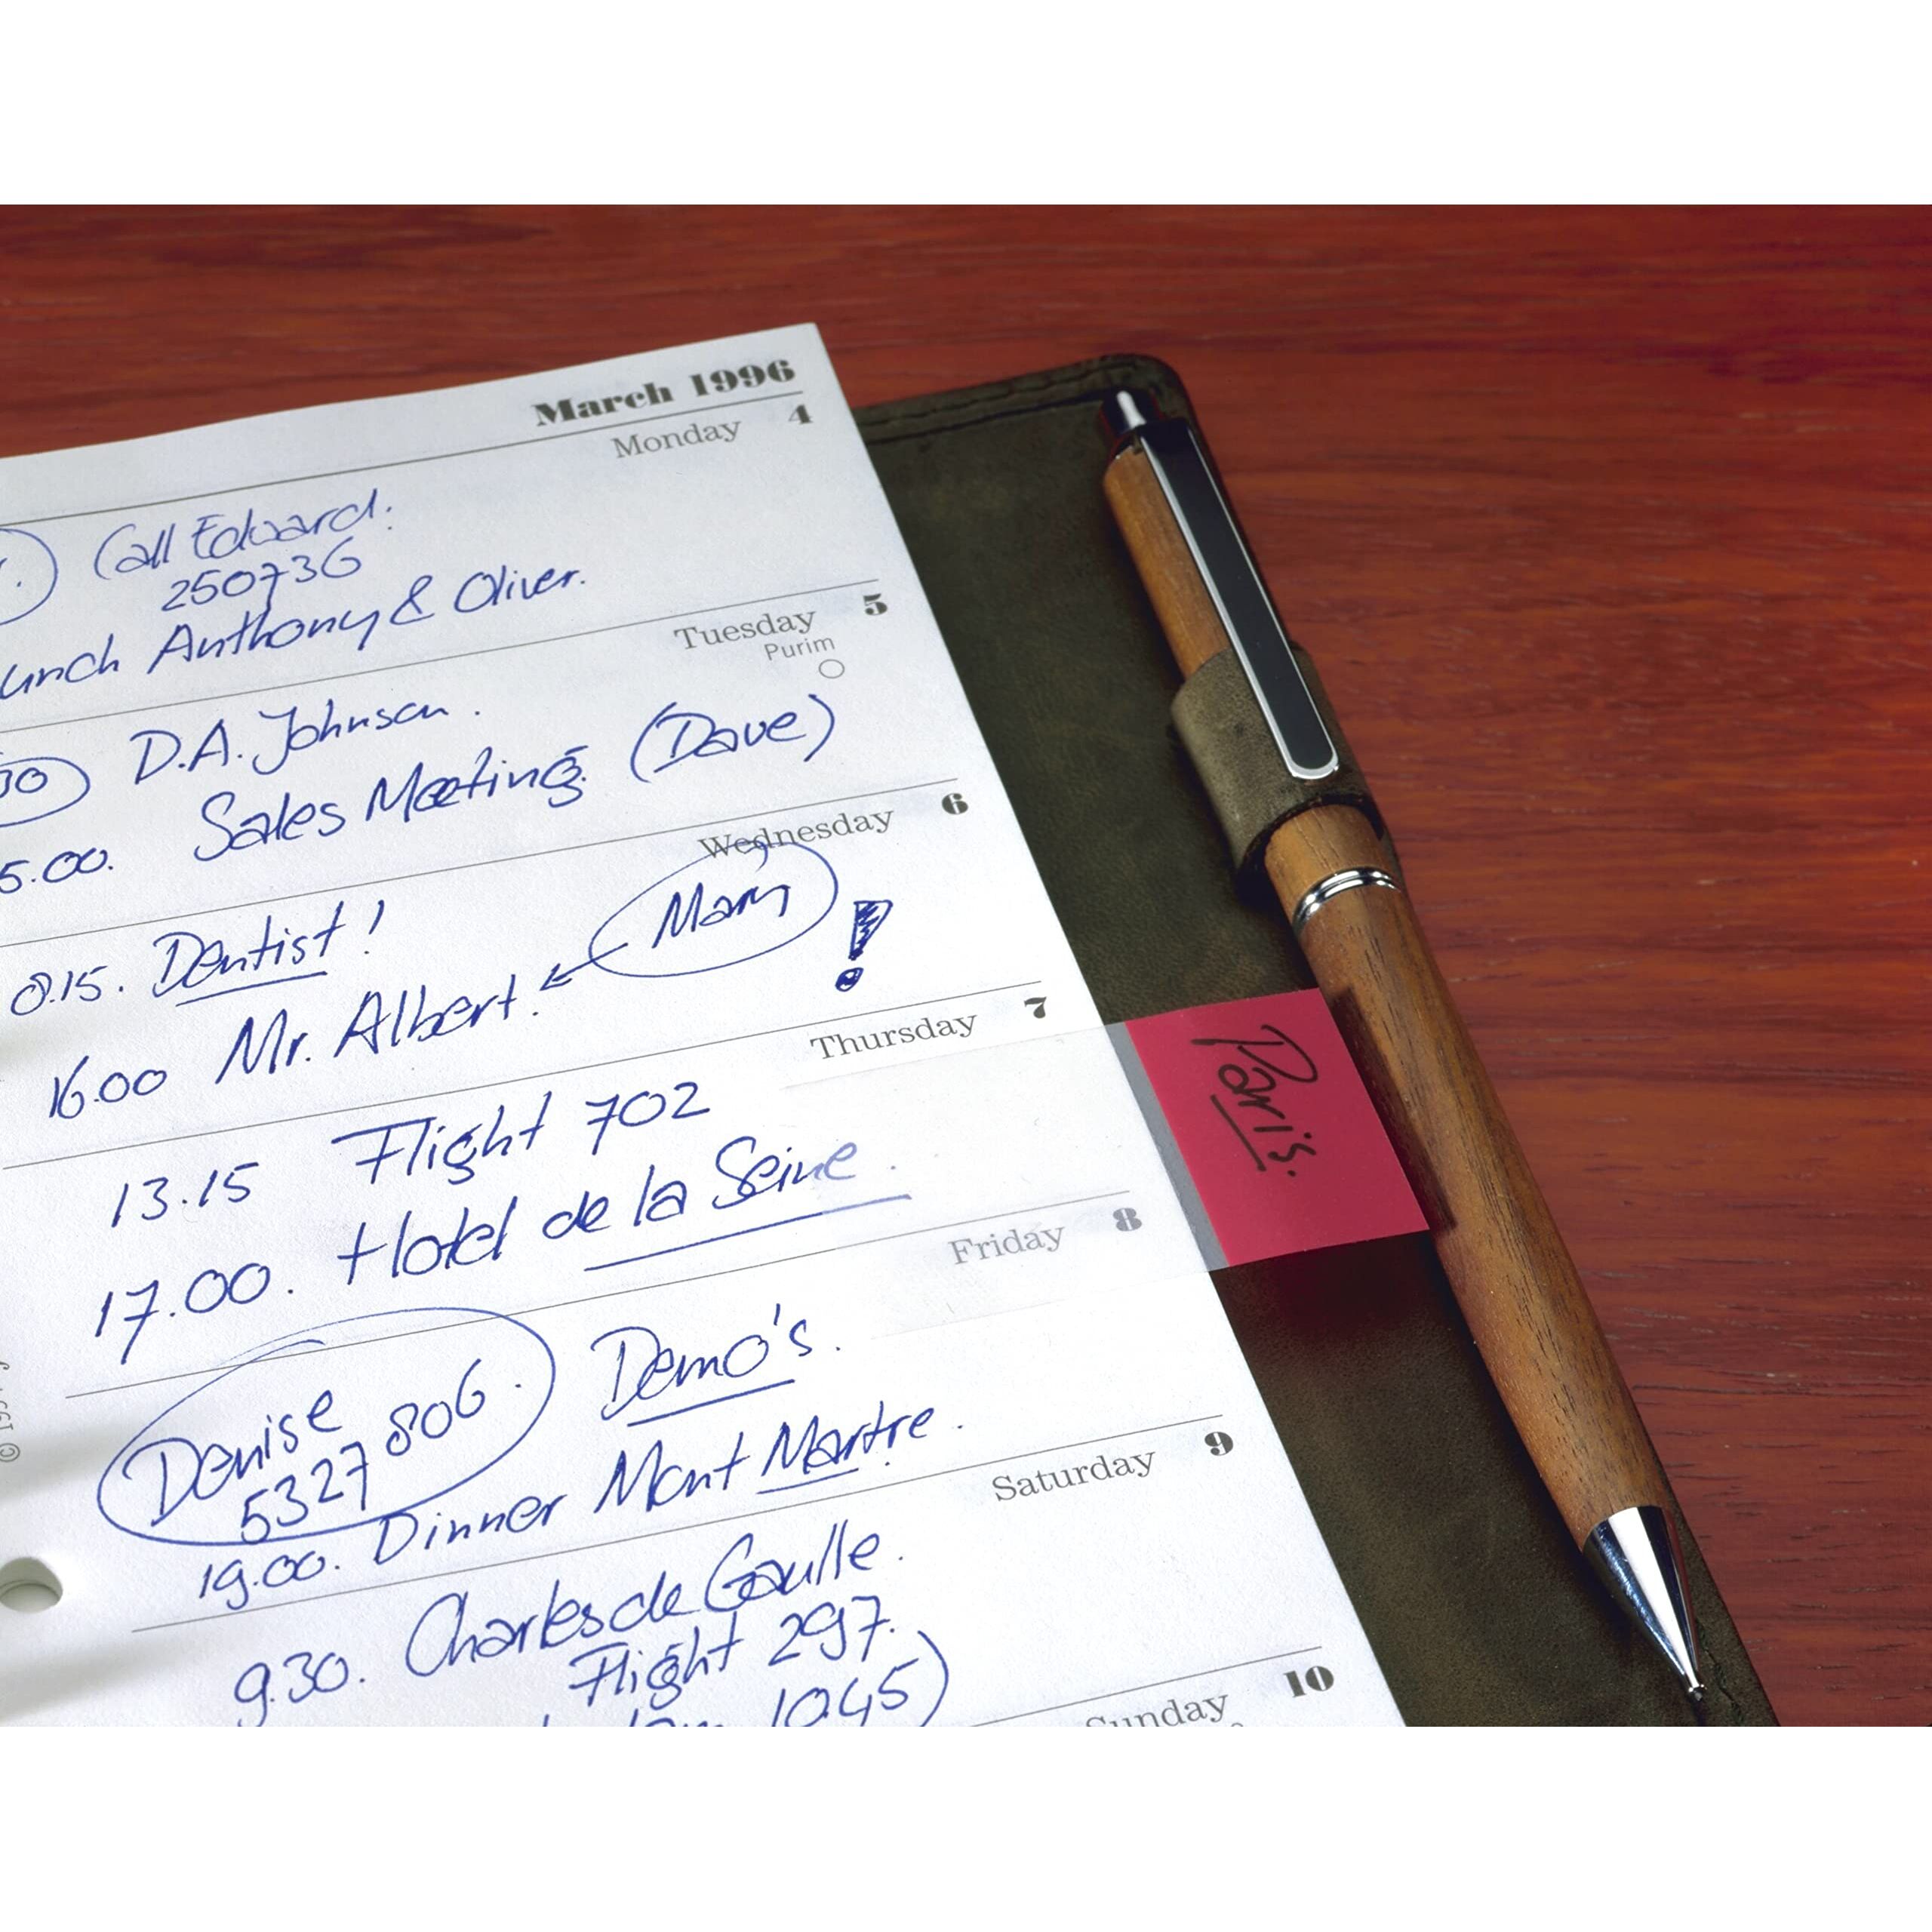 March 1996
Monday 4
Call Eduard.
250736
Anthony & Oliver.
Tuesday 5
Purim
30 D.A. Johnson.
5.00. Sales Meeting (Dave)
Wednesday 6
8.15. Dentist!
Mary
16.00 Mr. Albert. !
Thursday 7
13.15 Flight 702
17.00. Hotel de la Seine.
Paris.
Friday 8
Denise Demo's.
5327806.
19.00. Dinner Mont Martre.
Saturday 9
9.30. Charles de Gaulle.
Flight 297.
10.45)
Sunday 10